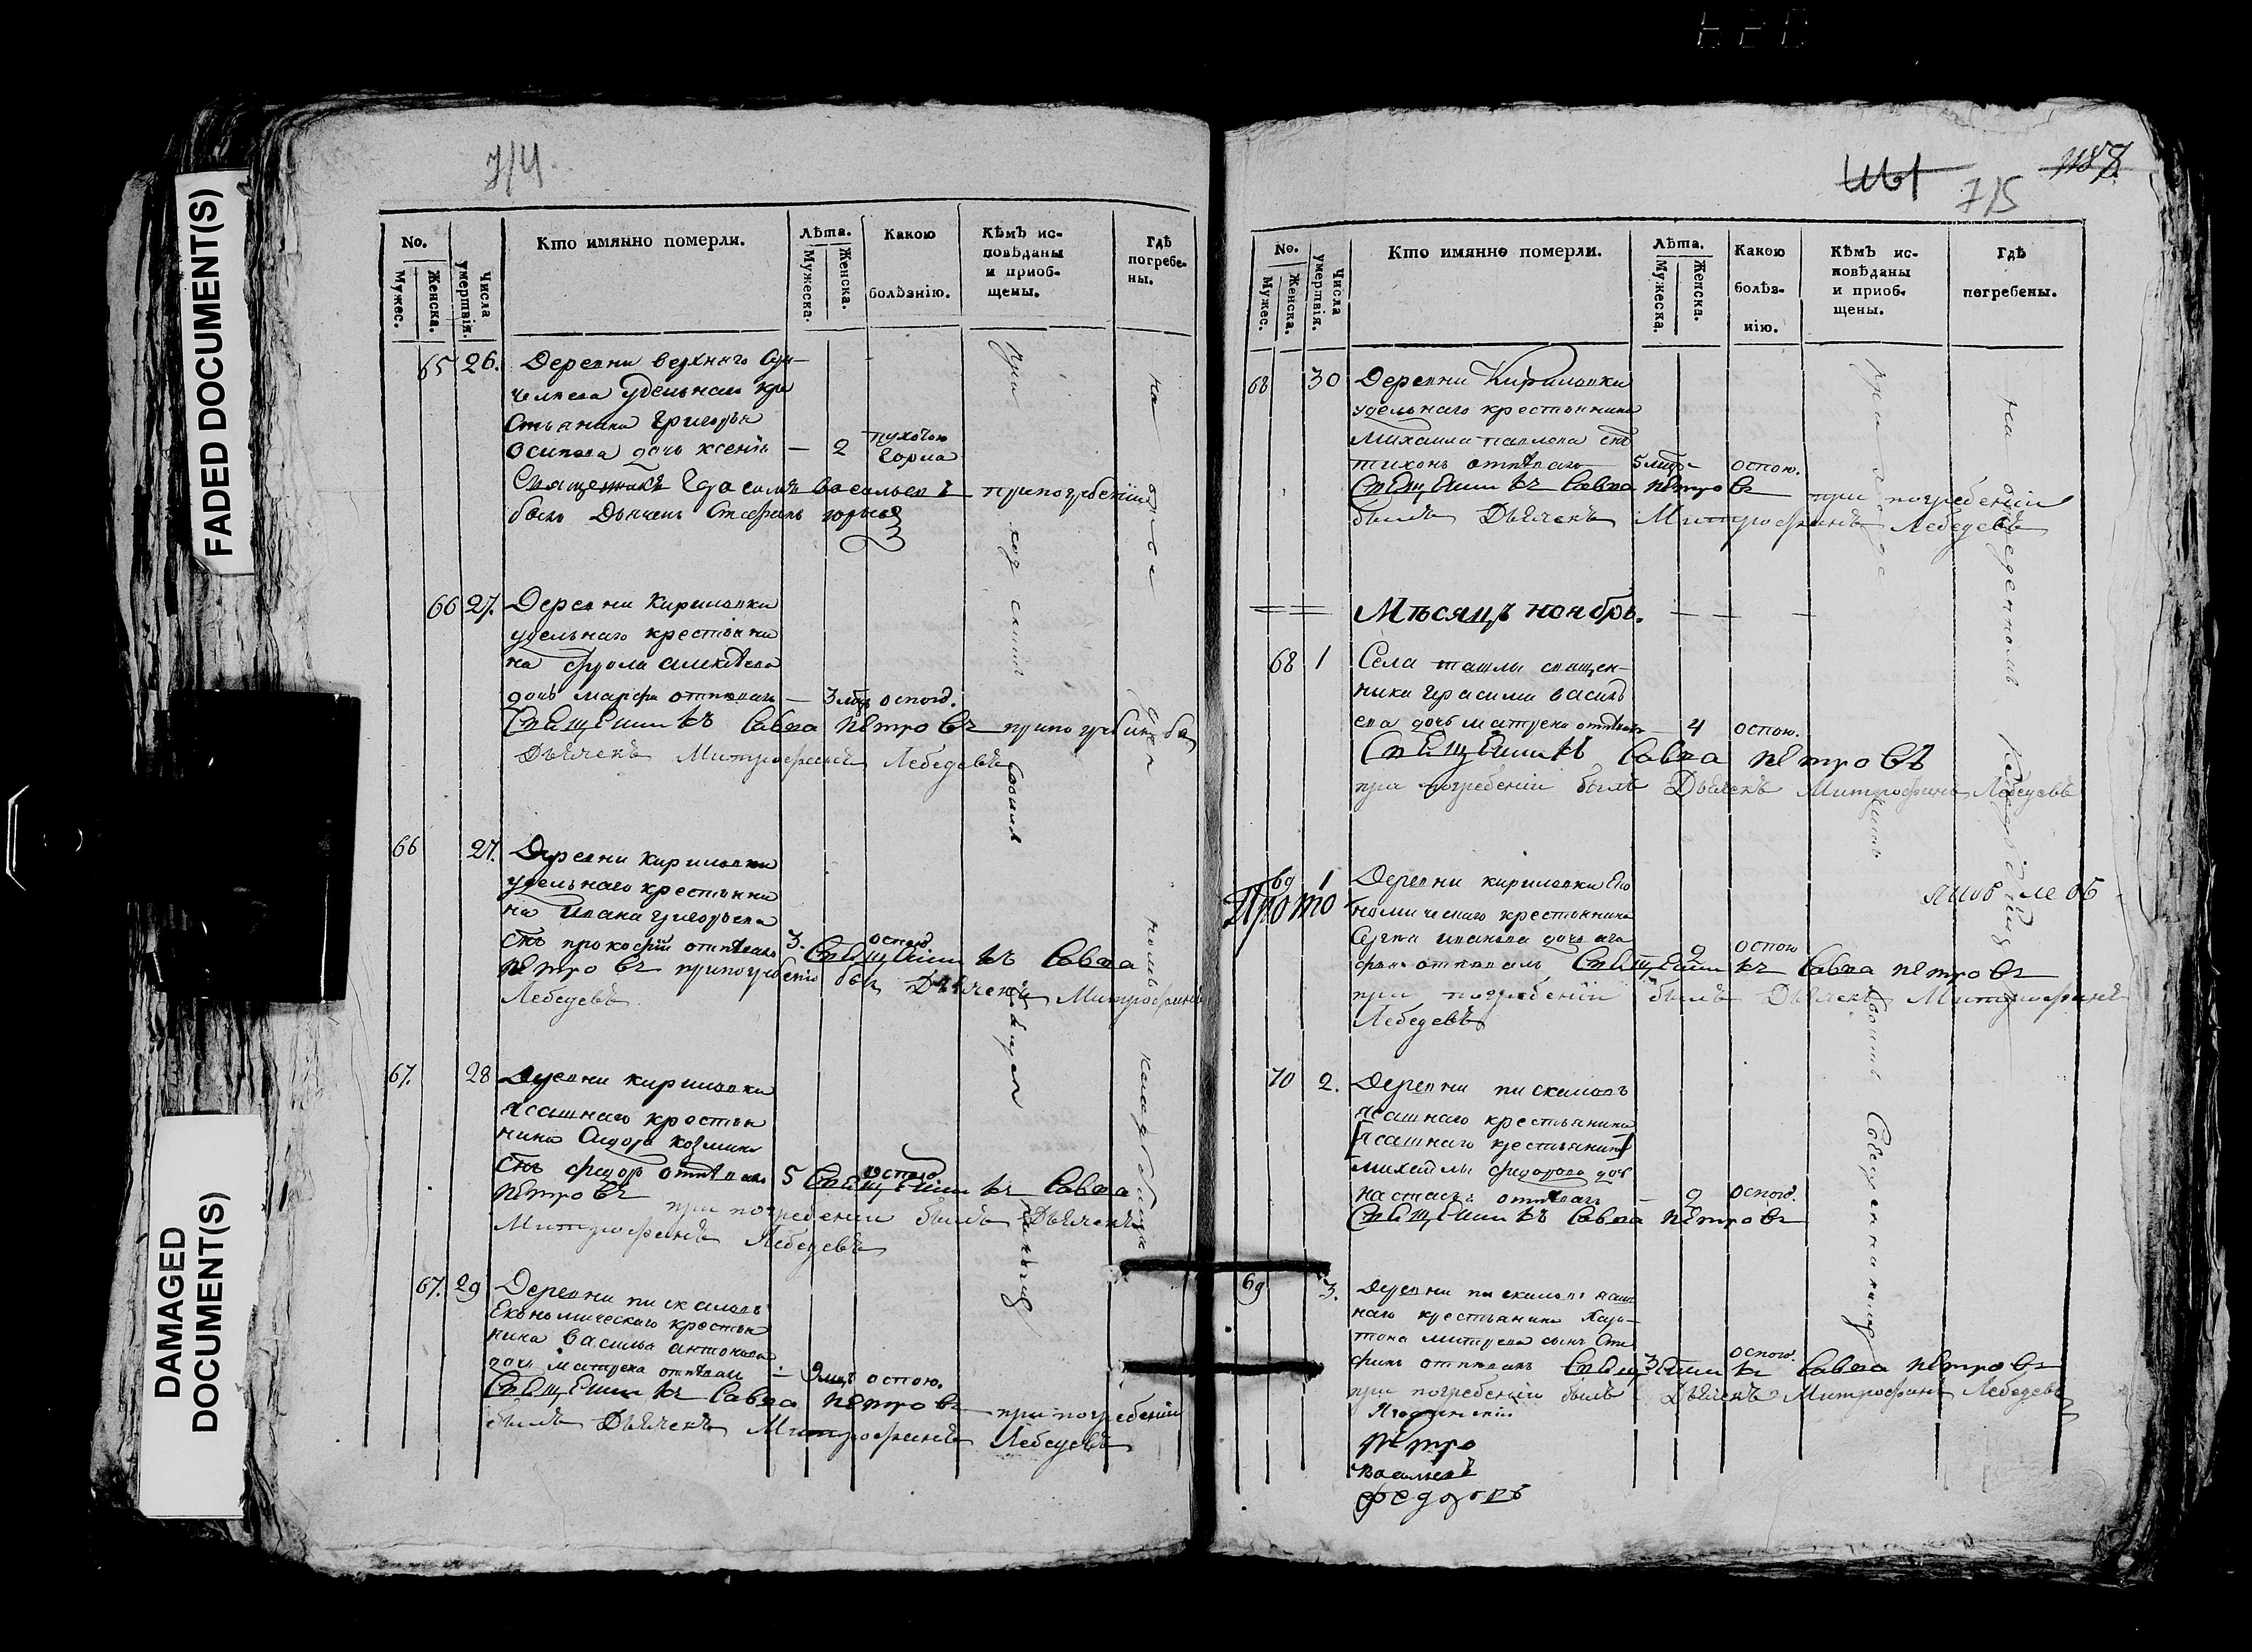 FADED DOCUMENT(S)
DAMAGED
DOCUMENT(S)
714
No.
Мужес.
Женска.
Числа умертвія.
Кто имянно померли.
Лѣта.
Мужеска.
Женска.
Какою
болѣзнію.
Кѣмъ ис-
повѣданы
и приоб-
щены.
Гдѣ
погребе-
ны.
65 26. Деревни верхняго
удельнаго кре
стьянина Григорья
Осипова дочь ксенія — 2
Священникъ Герасимъ васильевъ при погребеніи
былъ Дьячекъ Стефанъ юрьевъ
66 27. Деревни Кириловки
удельнаго крестьяни
на фрола алексѣева
дочь марфа отпѣвалъ — 3 мцъ оспою.
Священникъ Савва петровъ при погребеніи бы
Дьячекъ Митрофанъ Лебедевъ
66 27. Деревни Кириловки
удельнаго крестьяни
на Ивана григорьева
снъ прокофій отпѣвалъ 3. оспою.
Священникъ Савва
петровъ при погребеніи былъ Дьячекъ Митрофанъ
Лебедевъ
67. 28 Деревни кириловки
ясашнаго крестья
нина Сидора козмина
снъ федор отпѣвалъ 5 оспою.
Священникъ Савва
петровъ при погребеніи былъ Дьячекъ
Митрофанъ Лебедевъ
67. 29 Деревни пискаловъ
Економическаго крестья
нина василья антонова
дочь матрена отпѣвалъ — 9 мцъ оспою.
Священникъ Савва петровъ при погребеніи
былъ Дьячекъ Митрофанъ Лебедевъ
на
номъ
кладбище
715
No.
Мужес.
Женска.
Числа умертвія.
Кто имянно померли.
Лѣта.
Мужеска.
Женска.
Какою
болѣз-
нію.
Кѣмъ ис-
повѣданы
и приоб-
щены.
Гдѣ
погребены.
68 30 Деревни Кириловки
удельнаго крестьянина
Михаила павлова снъ
тихонъ отпѣвалъ 5 мцъ оспою.
Священникъ Савва петровъ при погребеніи
былъ Дьячекъ Митрофанъ Лебедевъ
Мѣсяцъ ноябрь.
68 1 Села ташлы священ-
ника герасима василь
ева дочь матрена отпѣвалъ 4 оспою.
Священникъ Савва петровъ
при погребеніи былъ Дьячекъ Митрофанъ Лебедевъ
69 1 Деревни кириловки Еко
Прото
номическаго крестьянина
Сергѣя иванова дочь ага
фья отпѣвалъ 2 оспою
Священникъ Савва петровъ
при погребеніи былъ Дьячекъ Митрофанъ
Лебедевъ
70 2. Деревни пискаловъ
ясашнаго крестьянина
ясашнаго крестьянина
михайлы федорова доч
настасья отпѣвалъ — 2 оспою.
Священникъ Савва петровъ
69 3. Деревни пискаловъ ясаш
наго крестьянина Хари-
тона митрева сынъ Сте
фанъ отпѣвалъ 3 оспою.
Священникъ Савва петровъ
при погребеніи былъ Дьячекъ Митрофанъ Лебедевъ
петро
васильевъ
федоровъ
на отведенномъ кладбище